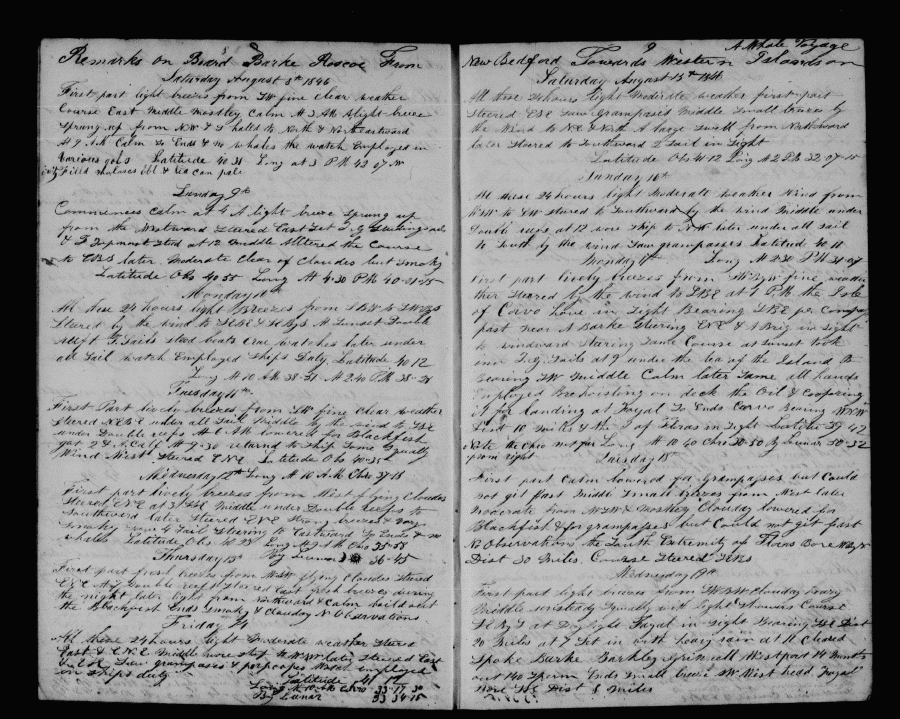 8
Remarks on Board Barke Roscoe From
Saturday August 8th 1846
First part light breezes from SW fine clear weather
Course East Middle Mostly Calm At 3 AM A light breeze
Sprung up from NW & S halls to North & Northeastward
At 9 AM Calm So Ends & no whales the watch Employed in
Various jobs Latitude 40 31 Long at 3 PM 42 07 W
Filled whalones bbl & red can pale
Sunday 9th
Commences calm at 4 A light breeze Sprung up
from the Westward Steered East Set T G Studdingsails
& F Topmost Sted at 12 Middle Altered the Course
to EBS later Moderate clear of Cloudes but Smoky
Latitude Obs 40 55 Long At 4-30 PM 40-31-55
Monday 10th
All these 24 hours light Breezes from SBW to
Stered by the wind to SEBE & At Sunset Double
Reeft T Sails steed boats Crue watches later under
all Sail watch Employed Ships Duty Latitude 40 12
Long At 10 AM 38-31 At 2 40 PM 38-21
Tuesday 11th
First Part lively breezes from SW fine clear weather
Stered NEBE under all Sail Middle by the wind to SBE
under Double reefs At 6 AM lowered for Blackfish
got 2 & A Calf At 9-30 returned to Ship Some Squally
Wind West Steered ENE Latitude Obs 40-35
Wednesday 12th Long At 10 AM Chro 37 18
First part lively breezes from West flying Cloudes
Steered ENE at 3 Middle under Double Reefs to
Southward later Steered ENE Strong breezes &
Smoky Saw A Sail Steering to Eastward So Ends & no
whales Latitude Obs 40 Long At 9 AM Chro 35-55
Thursday 13 By Lunar 36-45
First part fresh breezes from West flying Cloudes Steered
ENE At 7 Double reef Steered East fresh breezes during
the night later light from Northward & Calm boild out
the Blackfish Ends Smoky & Cloudy N Observations
Friday 14
All these 24 hours light Moderate weather Steerd
East & ENE Middle wore Ship to NW later Steered East
& ENE Saw grampases & porpoises Watch employed
in Ships duty Latitude 41 12
Long At 10 AM Chro 33-17 30
By Lunar 33 34-15
9
A Whale Voyage
New Bedford Towards Western Islands on
Saturday August 15th 1846
All these 24 hours light Moderate weather first part
Steered ESE Saw Grampases Middle Small breezes by
the Wind to NE & North A large Swell from Northward
later Steered to Southward 2 Sail in Sight
Latitude Obs 41-12 Long At 2 PM 32-07-15
Sunday 16th
All these 24 hours light Moderate weather Wind from
WSW to SW Stered to Southward by the wind Middle under
Double reefs at 12 wore Ship to NW later under all Sail
to South by the wind Saw grampasses Latitude 40 11
Monday 17 Long At 2 30 PM 31-07
First part lively breezes from fine weather
Steered by the wind to SBE at 1 PM the Isle
of Corvo Hove in Sight Bearing SBE per Compas
past near A Barke Steering ENE & A Brig in Sight
to windward Staring Same Course at Sunset took
in TG Sails at 9 under the lea of the Island
Bearing SW Middle Calm later Same all hands
Employed Breakoisting on deck the Oil & Coopering
it for landing at Fayal So Ends Corvo bearing WNW
Dist 10 Miles & the I of Flores in Sight Latitude 39 42
Note the Chro not per Long At 10 40 Chro 30 50 By Lunar 30-52
from right
Tuesday 18th
First part Calm lowered for grampasses but Could
not git fast Middle Small brezes from West later
Moderate from WSW & Mostley Clouday lowered for
Blackfish & for grampasses but Could not git fast
No Observations the South Extremity of Flores Bore
Dist 30 Miles Course Steered
Wednesday 19th
First part light breezes from Clouday
Middle unsteady Squally with light Showers Course
at Daylight Fayal in Sight Bearing Dist
20 Miles at 7 Set in with heavy rain at 11 Cleared
Spoke Barke Barkley Grinnell Westport 14 Months
out 140 Sperm Ends Small breeze SW West hedd Fayal
bore Dist 8 Miles